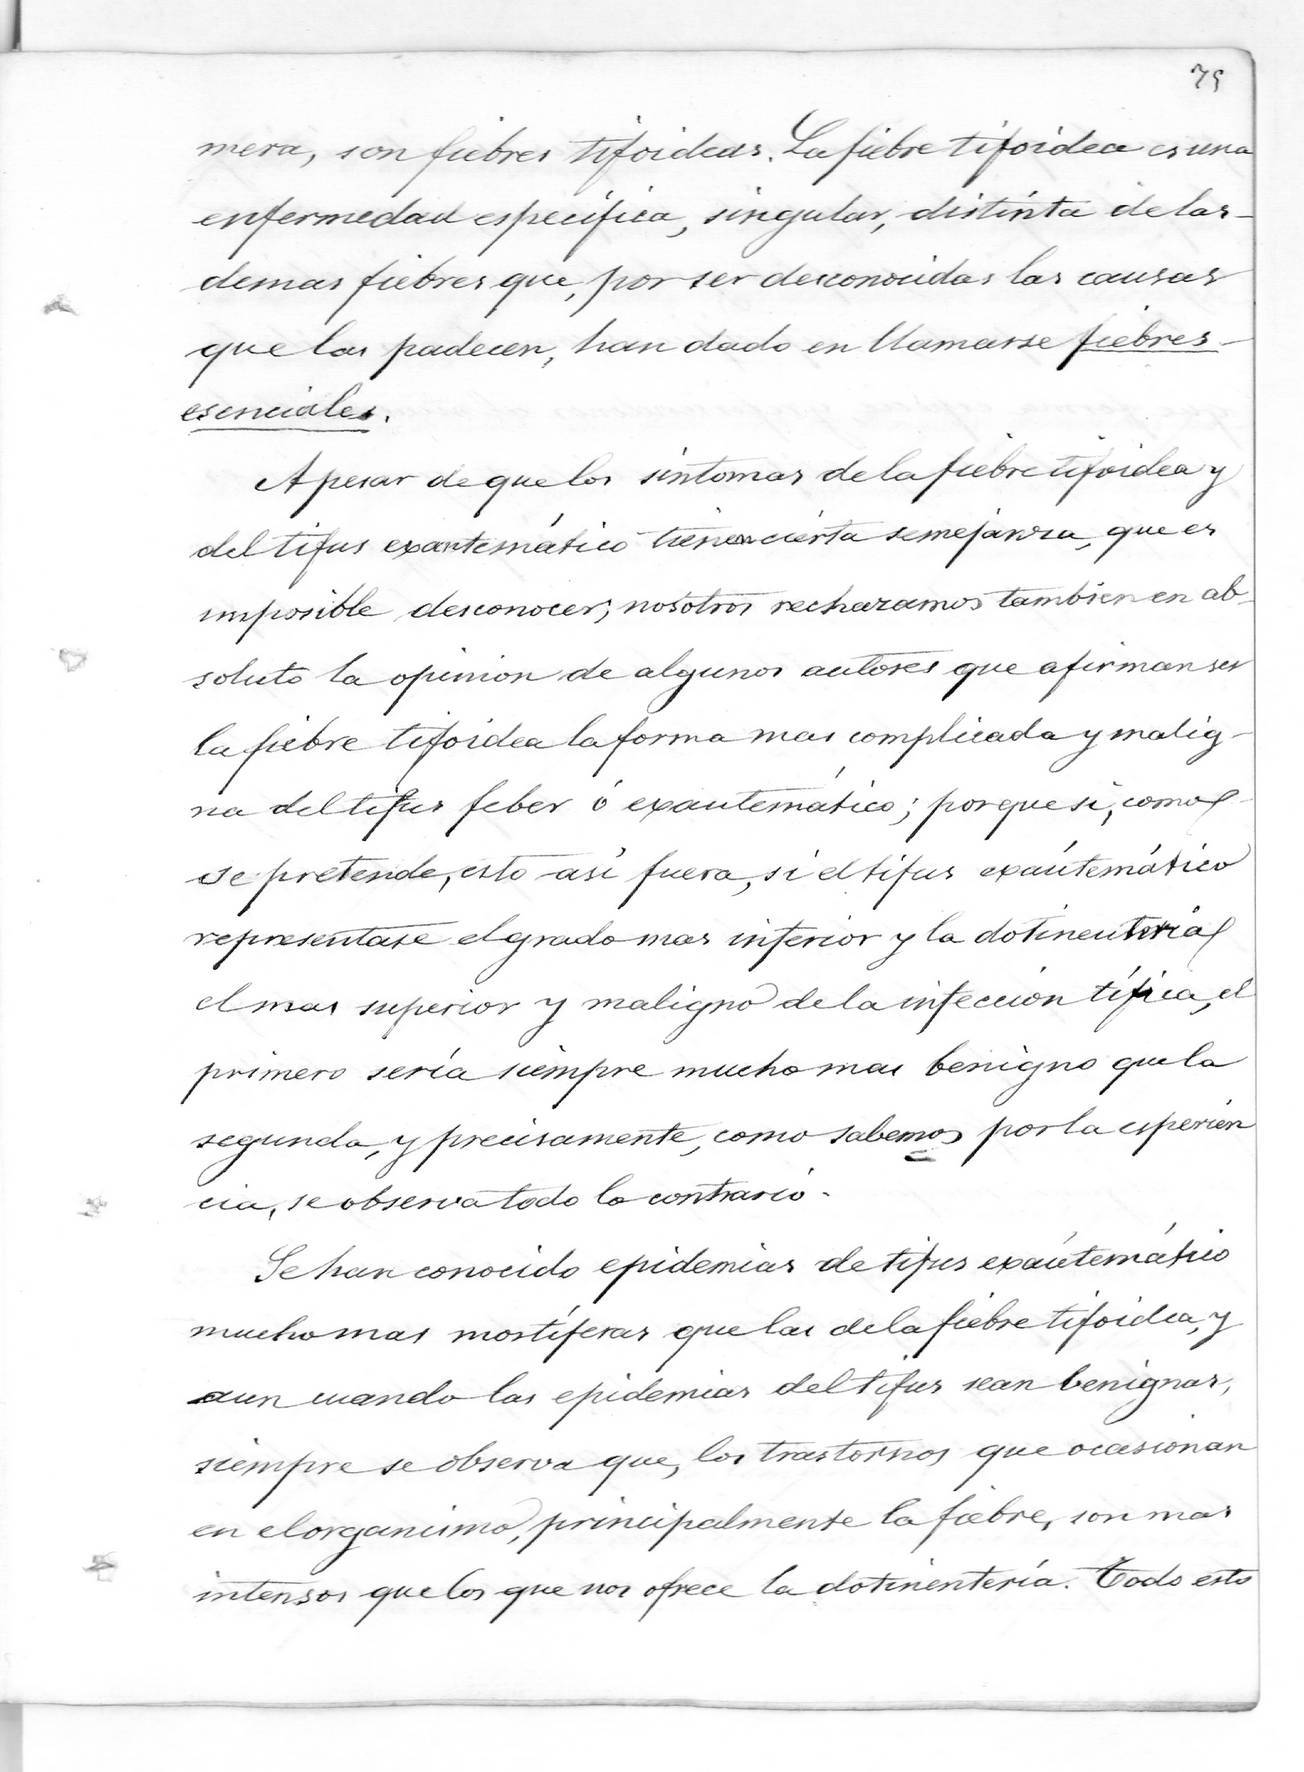 75
mera, son fiebres tifoideas. La fiebre tifoidea es una
enfermedad específica, singular, distinta de las-
demas fiebres que, por ser desconocidas las causas
que las padecen, han dado en llamarse fiebres-
esenciales.
A pesar de que los síntomas de la fiebre tifoidea y
del tifus exantemático tienen cierta semejanza, que es
imposible desconocer, nosotros rechazamos tambien en ab-
soluto la opinion de algunos autores que afirman ser
la fiebre tifoidea la forma mas complicada y malig-
na del tifus feber ó exautemático; porque si, como
se pretende, esto así fuera, si el tifus exautemático
representase el grado mas inferior y la dotineutería
el mas superior y maligno de la infección tífica, el
primero sería siempre mucho mas benigno que la
segunda, y precisamente, como sabemos por la esperien
cia, se observa todo lo contrario.
Se han conocido epidemias de tifus exautemático
mucho mas mortíferas que las de la fiebre tifoidea, y
aun cuando las epidemias del tifus sean benignas,
siempre se observa que, los trastornos que ocasionan
en el organismo, principalmente la fiebre, son mas
intensos que los que nos ofrece la dotinentería. Todo esto